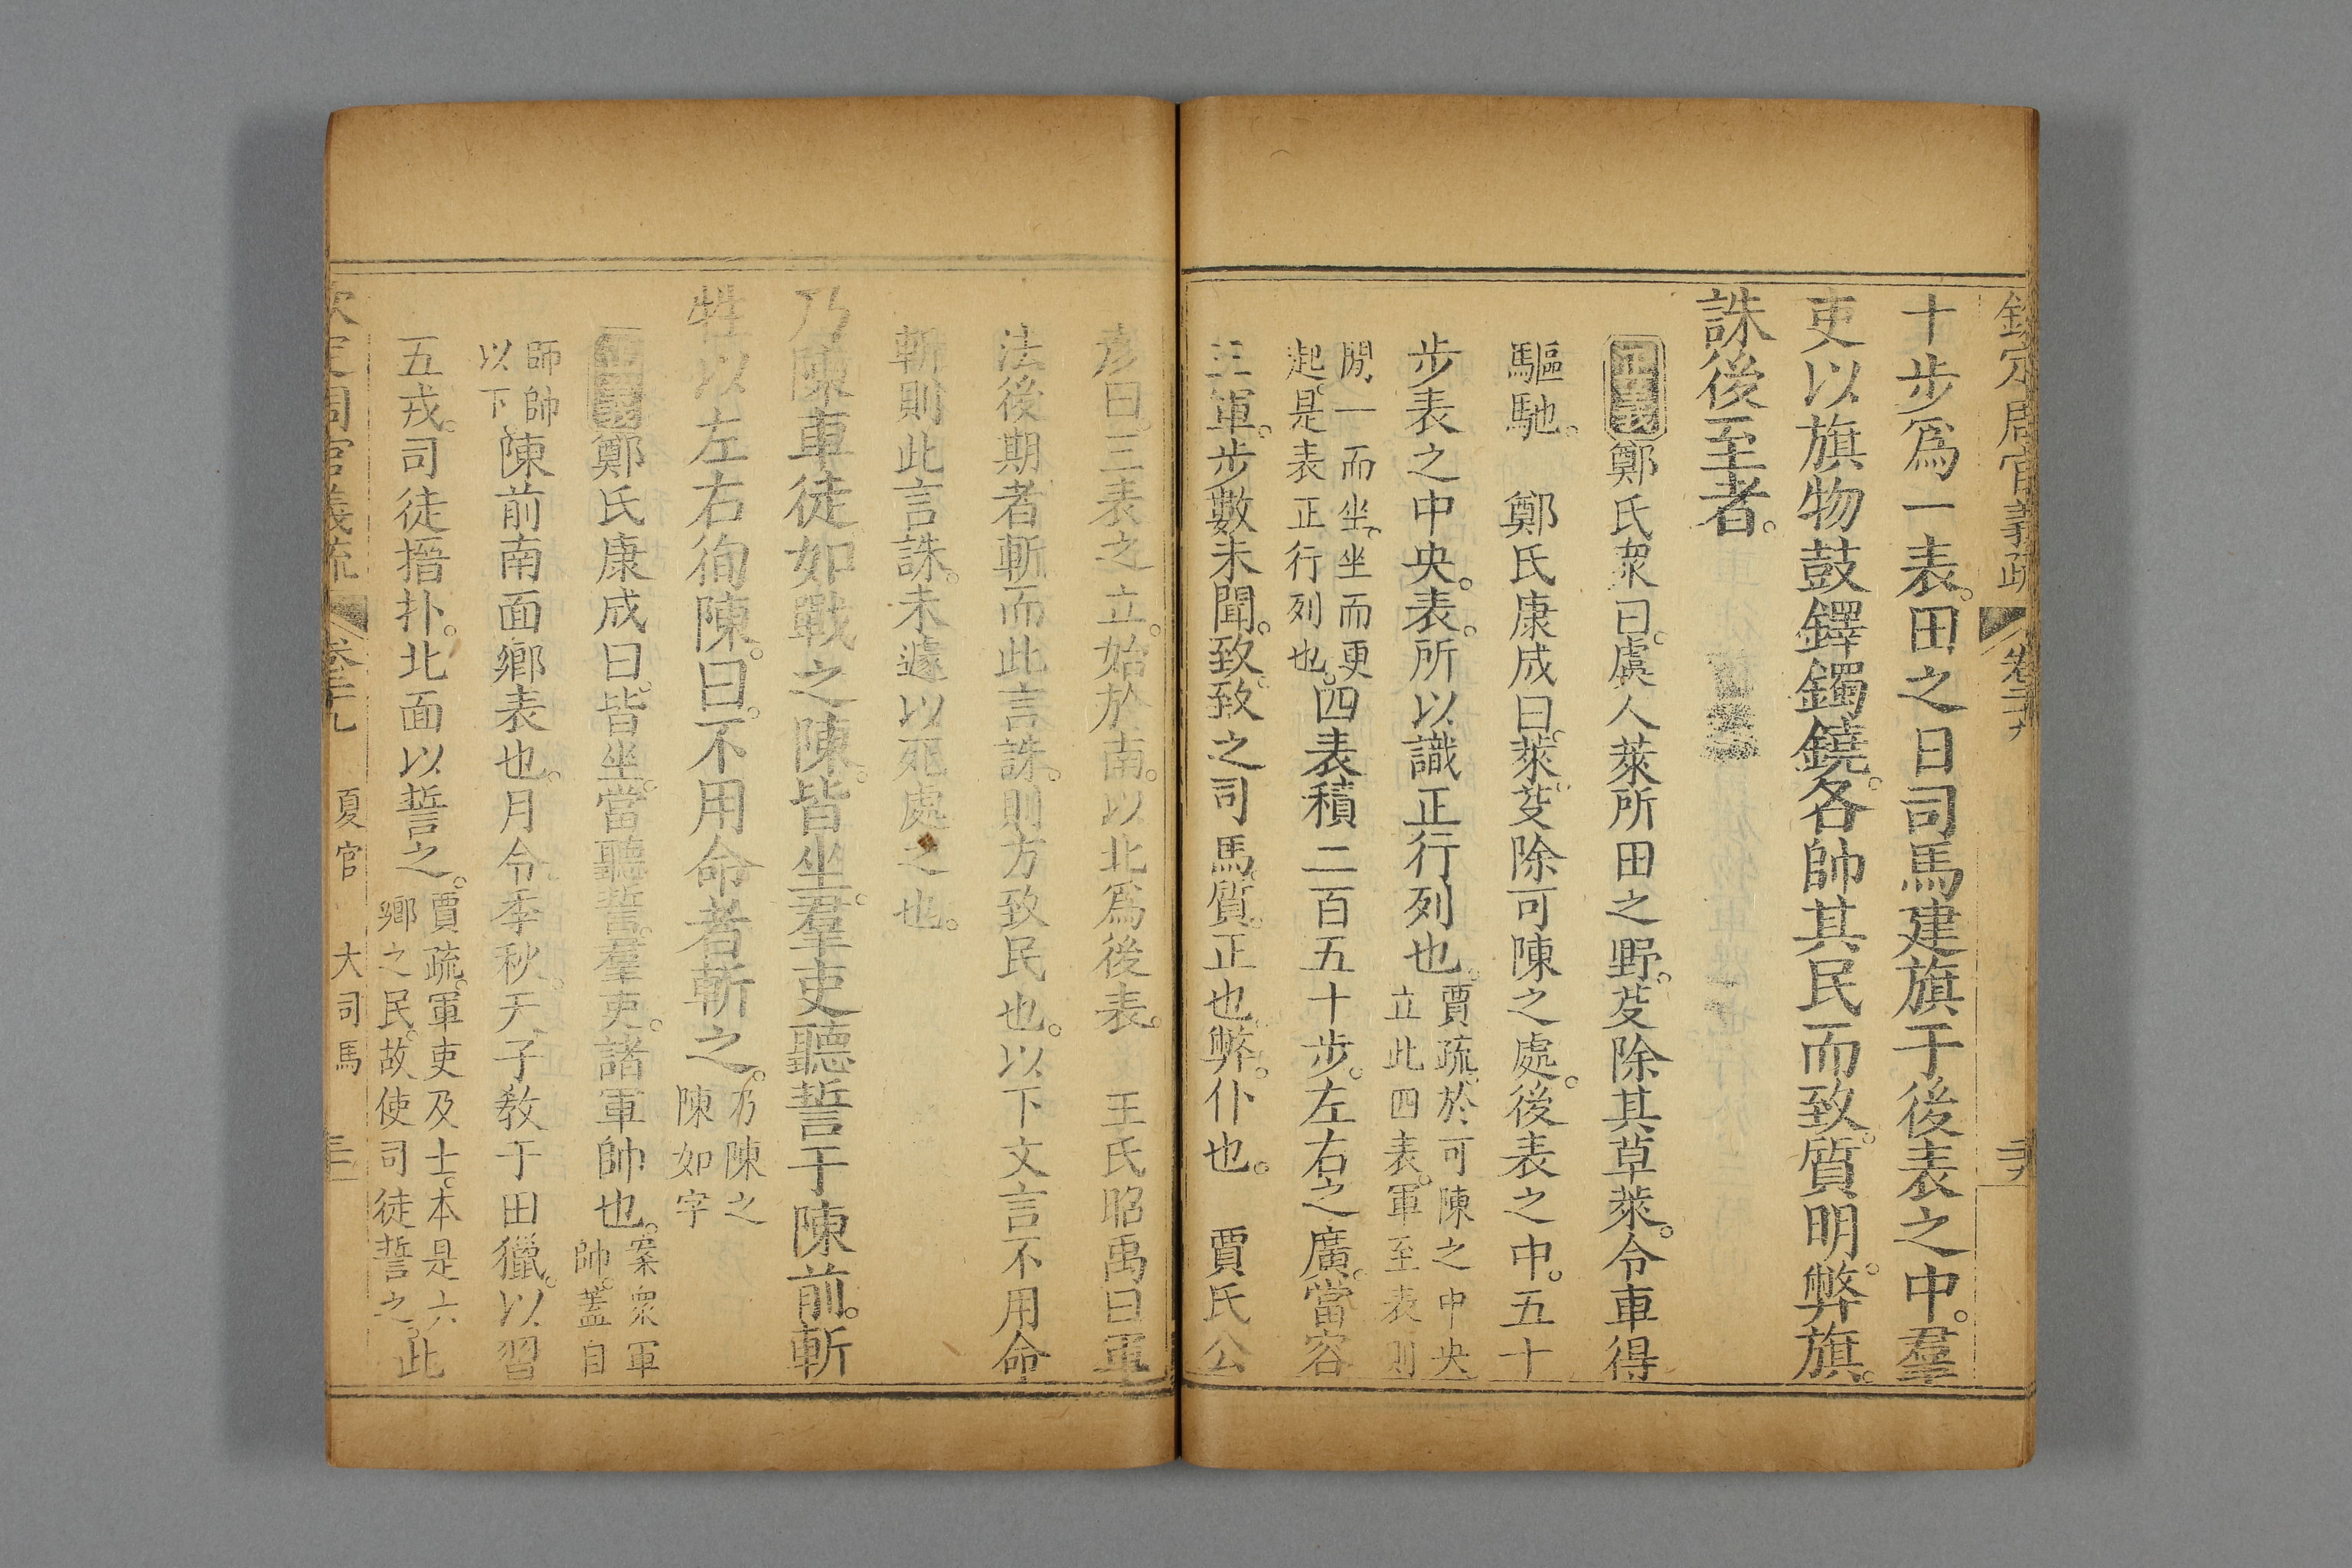 欽定周官義疏 卷二十九 三十九
十步為一表。田之日司馬建旗于後表之中。羣
吏以旗物鼓鐸鐲鐃。各帥其民而致。質明。弊旗。
誅後至者。
正義 鄭氏衆曰。虞人萊所田之野。芟除其草萊。令車得
驅馳。 鄭氏康成曰。萊芟除可陳之處。後表之中。五十
步表之中央。表。所以識正行列也。賈疏。於可陳之中央
立此四表。軍至表則
間一而坐。坐而更
起。是表正行列也。四表積二百五十步。左右之廣。當容
三軍。步數未聞。致。致之司馬。質。正也。弊。仆也。 賈氏公
彥曰。三表之立。始於南。以北為後表。 王氏昭禹曰軍
法後期者斬而此言誅。則方致民也。以下文言不用命
斬則此言誅。未遽以死處之也。
乃陳車徒如戰之陳。皆坐。羣吏聽誓于陳前。斬
牲以左右徇陳。曰。不用命者斬之。乃陳之
陳如字
正義 鄭氏康成曰。皆坐。當聽誓。羣吏。諸軍帥也。案衆軍
帥。蓋自
師帥
以下。陳前南面鄉表也。月令季秋。天子教于田獵。以習
五戎。司徒搢扑。北面以誓之。賈疏。軍吏及士。本是六
鄉之民。故使司徒誓之。此
欽定周官義疏 卷二十九 夏官 大司馬